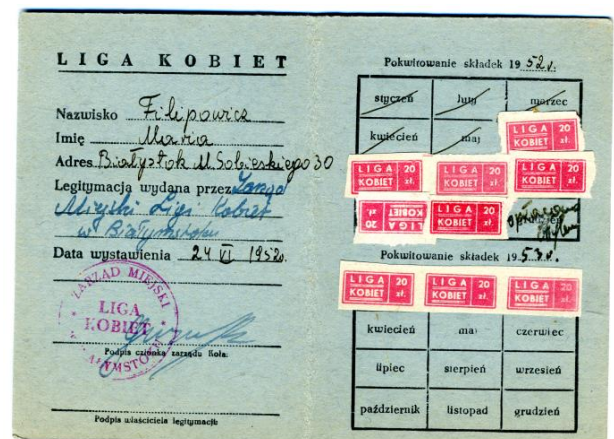 LIGA KOBIET
Nazwisko Filipowicz
Imię Maria
Adres Białystok ul Sobieskiego 30
Legitymacja wydana przez Zarząd
Miejski Ligi Kobiet
w Białymstoku
Data wystawienia 24 VI 1952.
ZARZĄD MIEJSKI
LIGA
KOBIET
Podpis członka zarządu Koła.
Podpis właściciela legitymacji
Pokwitowanie składek 1952 r.
styczeń luty marzec
kwiecień maj
LIGA KOBIET 20 zł.
LIGA KOBIET 20 zł. LIGA KOBIET 20 zł. LIGA KOBIET 20 zł.
LIGA KOBIET 20 zł. LIGA KOBIET 20 zł.
Pokwitowanie składek 1953 r.
LIGA KOBIET 20 zł. LIGA KOBIET 20 zł. LIGA KOBIET 20 zł.
kwiecień maj czerwiec
lipiec sierpień wrzesień
październik listopad grudzień